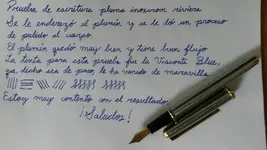 Prueba de escritura pluma inoxcrom riviera
Se le enderezó el plumín y se le dió un proceso
de pulido al cuerpo.
El plumín quedó muy bien y tiene buen flujo
La tinta para esta prueba fue la Visconti Blue,
que, dicho sea de paso, le ha venido de maravilla.
Estoy muy contento con el resultado
¡Saludos!